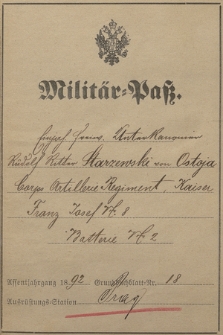 Militär-Paß.
Einjähr. Freiw. Unterkanonier
Rudolf Ritter Starzewski von Ostoja
Corps Artillerie Regiment Kaiser
Franz Josef No 8
Batterie No 2
Assentjahrgang 1892 Grundbuchblatt-Nr. 18
Ausrüstungs-Station Prag